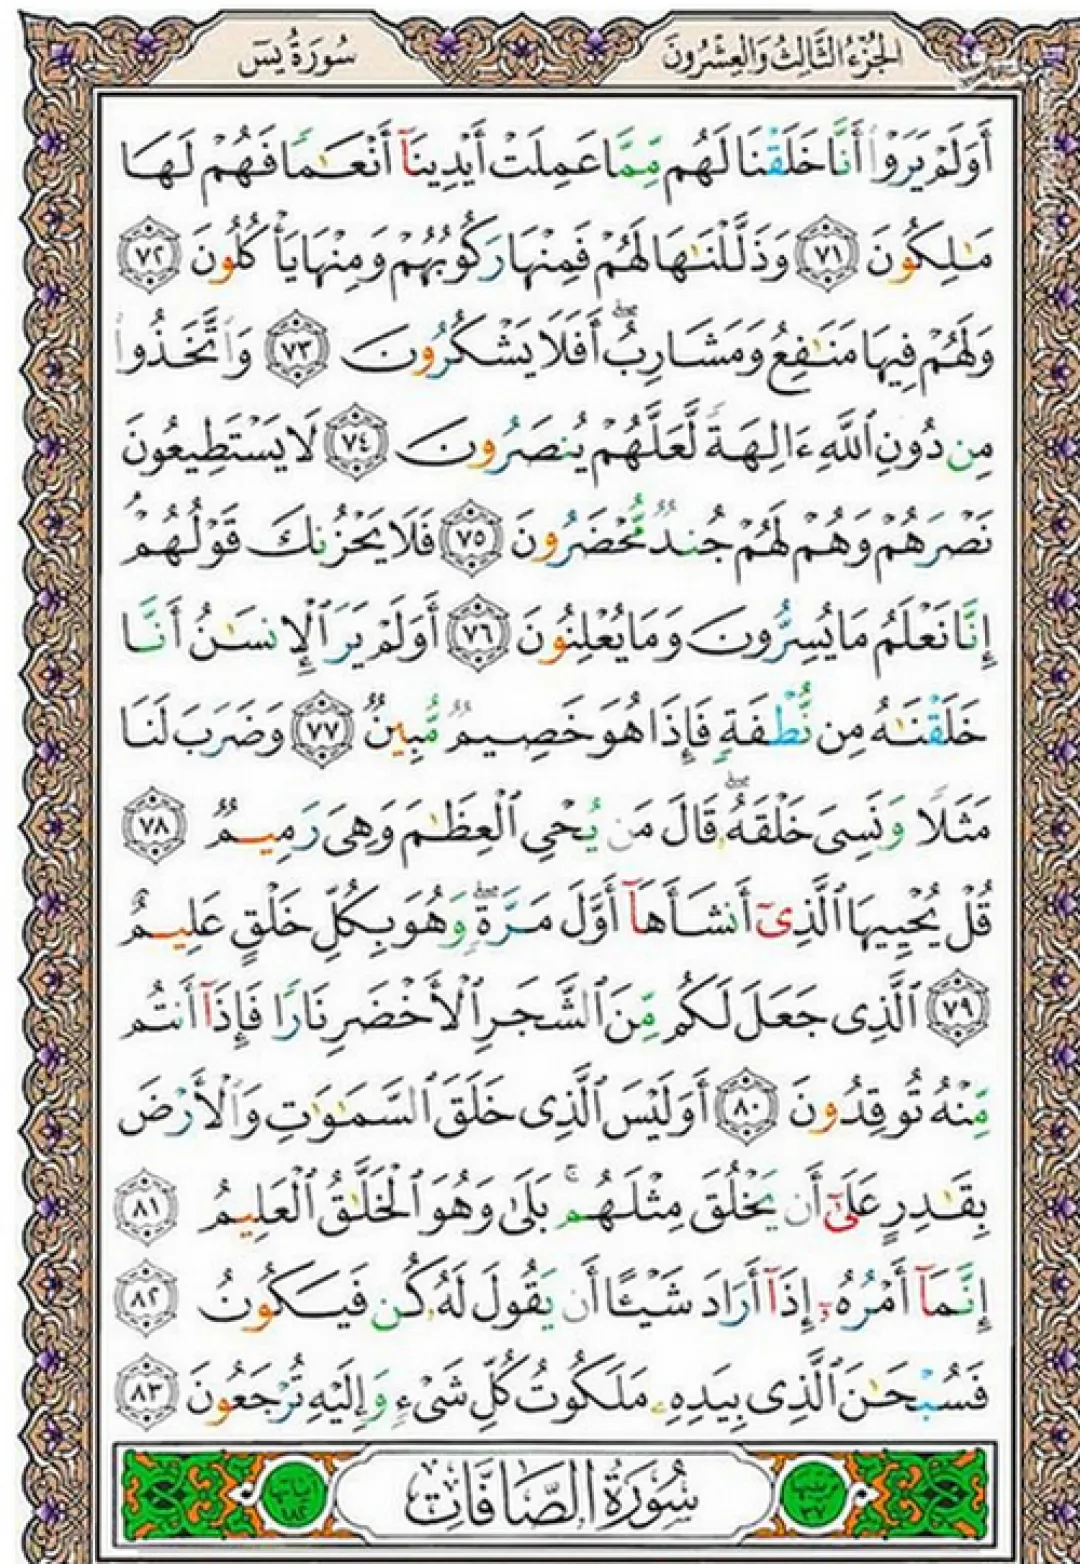 الجُزْءُ الثَّالِثُ وَالعِشْرُونَ
سُورَةُ يسٓ
أَوَلَمْ يَرَوْا۟ أَنَّا خَلَقْنَا لَهُم مِّمَّا عَمِلَتْ أَيْدِينَآ أَنْعَـٰمًا فَهُمْ لَهَا
مَـٰلِكُونَ ٧١ وَذَلَّلْنَـٰهَا لَهُمْ فَمِنْهَا رَكُوبُهُمْ وَمِنْهَا يَأْكُلُونَ ٧٢
وَلَهُمْ فِيهَا مَنَـٰفِعُ وَمَشَارِبُ ۖ أَفَلَا يَشْكُرُونَ ٧٣ وَٱتَّخَذُوا۟
مِن دُونِ ٱللَّهِ ءَالِهَةً لَّعَلَّهُمْ يُنصَرُونَ ٧٤ لَا يَسْتَطِيعُونَ
نَصْرَهُمْ وَهُمْ لَهُمْ جُندٌ مُّحْضَرُونَ ٧٥ فَلَا يَحْزُنكَ قَوْلُهُمْ ۘ
إِنَّا نَعْلَمُ مَا يُسِرُّونَ وَمَا يُعْلِنُونَ ٧٦ أَوَلَمْ يَرَ ٱلْإِنسَـٰنُ أَنَّا
خَلَقْنَـٰهُ مِن نُّطْفَةٍ فَإِذَا هُوَ خَصِيمٌ مُّبِينٌ ٧٧ وَضَرَبَ لَنَا
مَثَلًا وَنَسِىَ خَلْقَهُۥ ۖ قَالَ مَن يُحْىِ ٱلْعِظَـٰمَ وَهِىَ رَمِيمٌ ٧٨
قُلْ يُحْيِيهَا ٱلَّذِىٓ أَنشَأَهَآ أَوَّلَ مَرَّةٍ ۖ وَهُوَ بِكُلِّ خَلْقٍ عَلِيمٌ
٧٩ ٱلَّذِى جَعَلَ لَكُم مِّنَ ٱلشَّجَرِ ٱلْأَخْضَرِ نَارًا فَإِذَآ أَنتُم
مِّنْهُ تُوقِدُونَ ٨٠ أَوَلَيْسَ ٱلَّذِى خَلَقَ ٱلسَّمَـٰوَٰتِ وَٱلْأَرْضَ
بِقَـٰدِرٍ عَلَىٰٓ أَن يَخْلُقَ مِثْلَهُم ۚ بَلَىٰ وَهُوَ ٱلْخَلَّـٰقُ ٱلْعَلِيمُ ٨١
إِنَّمَآ أَمْرُهُۥٓ إِذَآ أَرَادَ شَيْـًٔا أَن يَقُولَ لَهُۥ كُن فَيَكُونُ ٨٢
فَسُبْحَـٰنَ ٱلَّذِى بِيَدِهِۦ مَلَكُوتُ كُلِّ شَىْءٍ وَإِلَيْهِ تُرْجَعُونَ ٨٣
سُورَةُ الصَّافَّاتِ